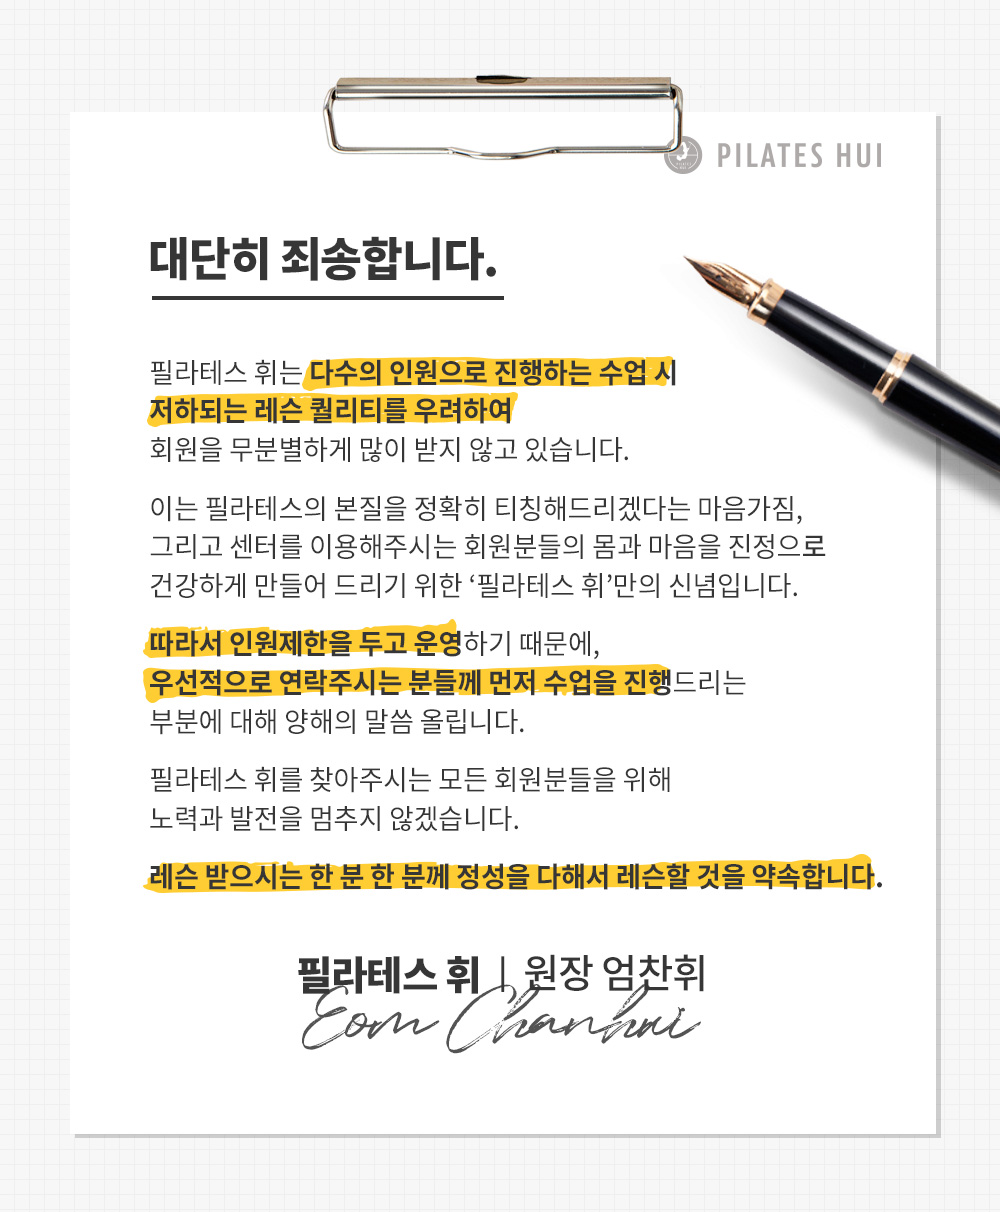 PILATES HUI
대단히 죄송합니다.
필라테스 휘는 다수의 인원으로 진행하는 수업 시
저하되는 레슨 퀄리티를 우려하여
회원을 무분별하게 많이 받지 않고 있습니다.
이는 필라테스의 본질을 정확히 티칭해드리겠다는 마음가짐,
그리고 센터를 이용해주시는 회원분들의 몸과 마음을 진정으로
건강하게 만들어 드리기 위한 ‘필라테스 휘’만의 신념입니다.
따라서 인원제한을 두고 운영하기 때문에,
우선적으로 연락주시는 분들께 먼저 수업을 진행드리는
부분에 대해 양해의 말씀 올립니다.
필라테스 휘를 찾아주시는 모든 회원분들을 위해
노력과 발전을 멈추지 않겠습니다.
레슨 받으시는 한 분 한 분께 정성을 다해서 레슨할 것을 약속합니다.
필라테스 휘 | 원장 엄찬휘
Eom Chanhui